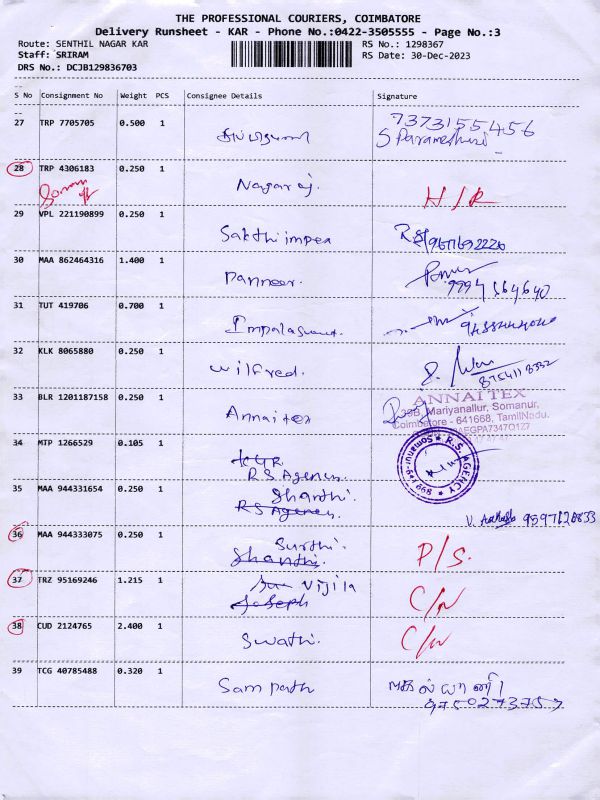 THE PROFESSIONAL COURIERS, COIMBATORE
Delivery Runsheet - KAR - Phone No.:0422-3505555 - Page No.:3
Route: SENTHIL NAGAR KAR RS No.: 1298367
Staff: SRIRAM RS Date: 30-Dec-2023
DRS No.: DCJB129836703
S No Consignment No Weight PCS Consignee Details Signature
27 TRP 7705705 0.500 1 7373155456
S Parameshwari
28 TRP 4306183 0.250 1 Nagaraj. H/R
29 VPL 221190899 0.250 1 Sakthi impex
30 MAA 862464316 1.400 1 Panneer. 9994564640
31 TUT 419706 0.700 1
32 KLK 8065880 0.250 1 Wilfred. 8754118332
33 BLR 1201187158 0.250 1 Annai tex
ANNAI TEX
Mariyanallur, Somanur,
Coimbatore - 641668, TamilNadu.
34 MTP 1266529 0.105 1 KGR
R.S Agency.
R.S. AGENCY
Somanur-641 668
35 MAA 944331654 0.250 1 Shanthi.
RS Agency. 9597126833
36 MAA 944333075 0.250 1 Surthi.
Shanthi. P/S.
37 TRZ 95169246 1.215 1 Vijila
Joseph C/N
38 CUD 2124765 2.400 1 Swathi. C/N
39 TCG 40785488 0.320 1 Sampath கல்யாணி
9750273757